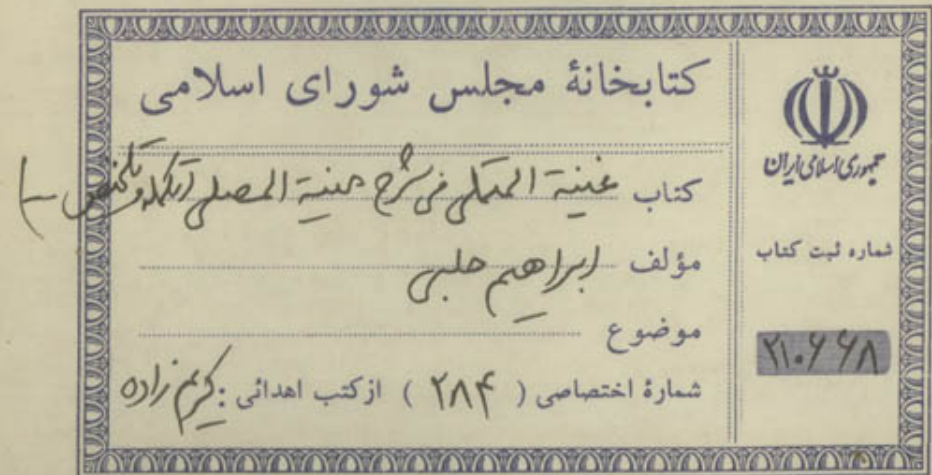 کتابخانهٔ مجلس شورای اسلامی
کتاب غنیة المتملی فی شرح منیة المصلی
مؤلف ابراهیم حلبی
موضوع
شمارهٔ اختصاصی ( ۲۸۴ ) از کتب اهدائی : کریم زاده
جمهوری اسلامی ایران
شماره ثبت کتاب
۲۱۰۶۶۸